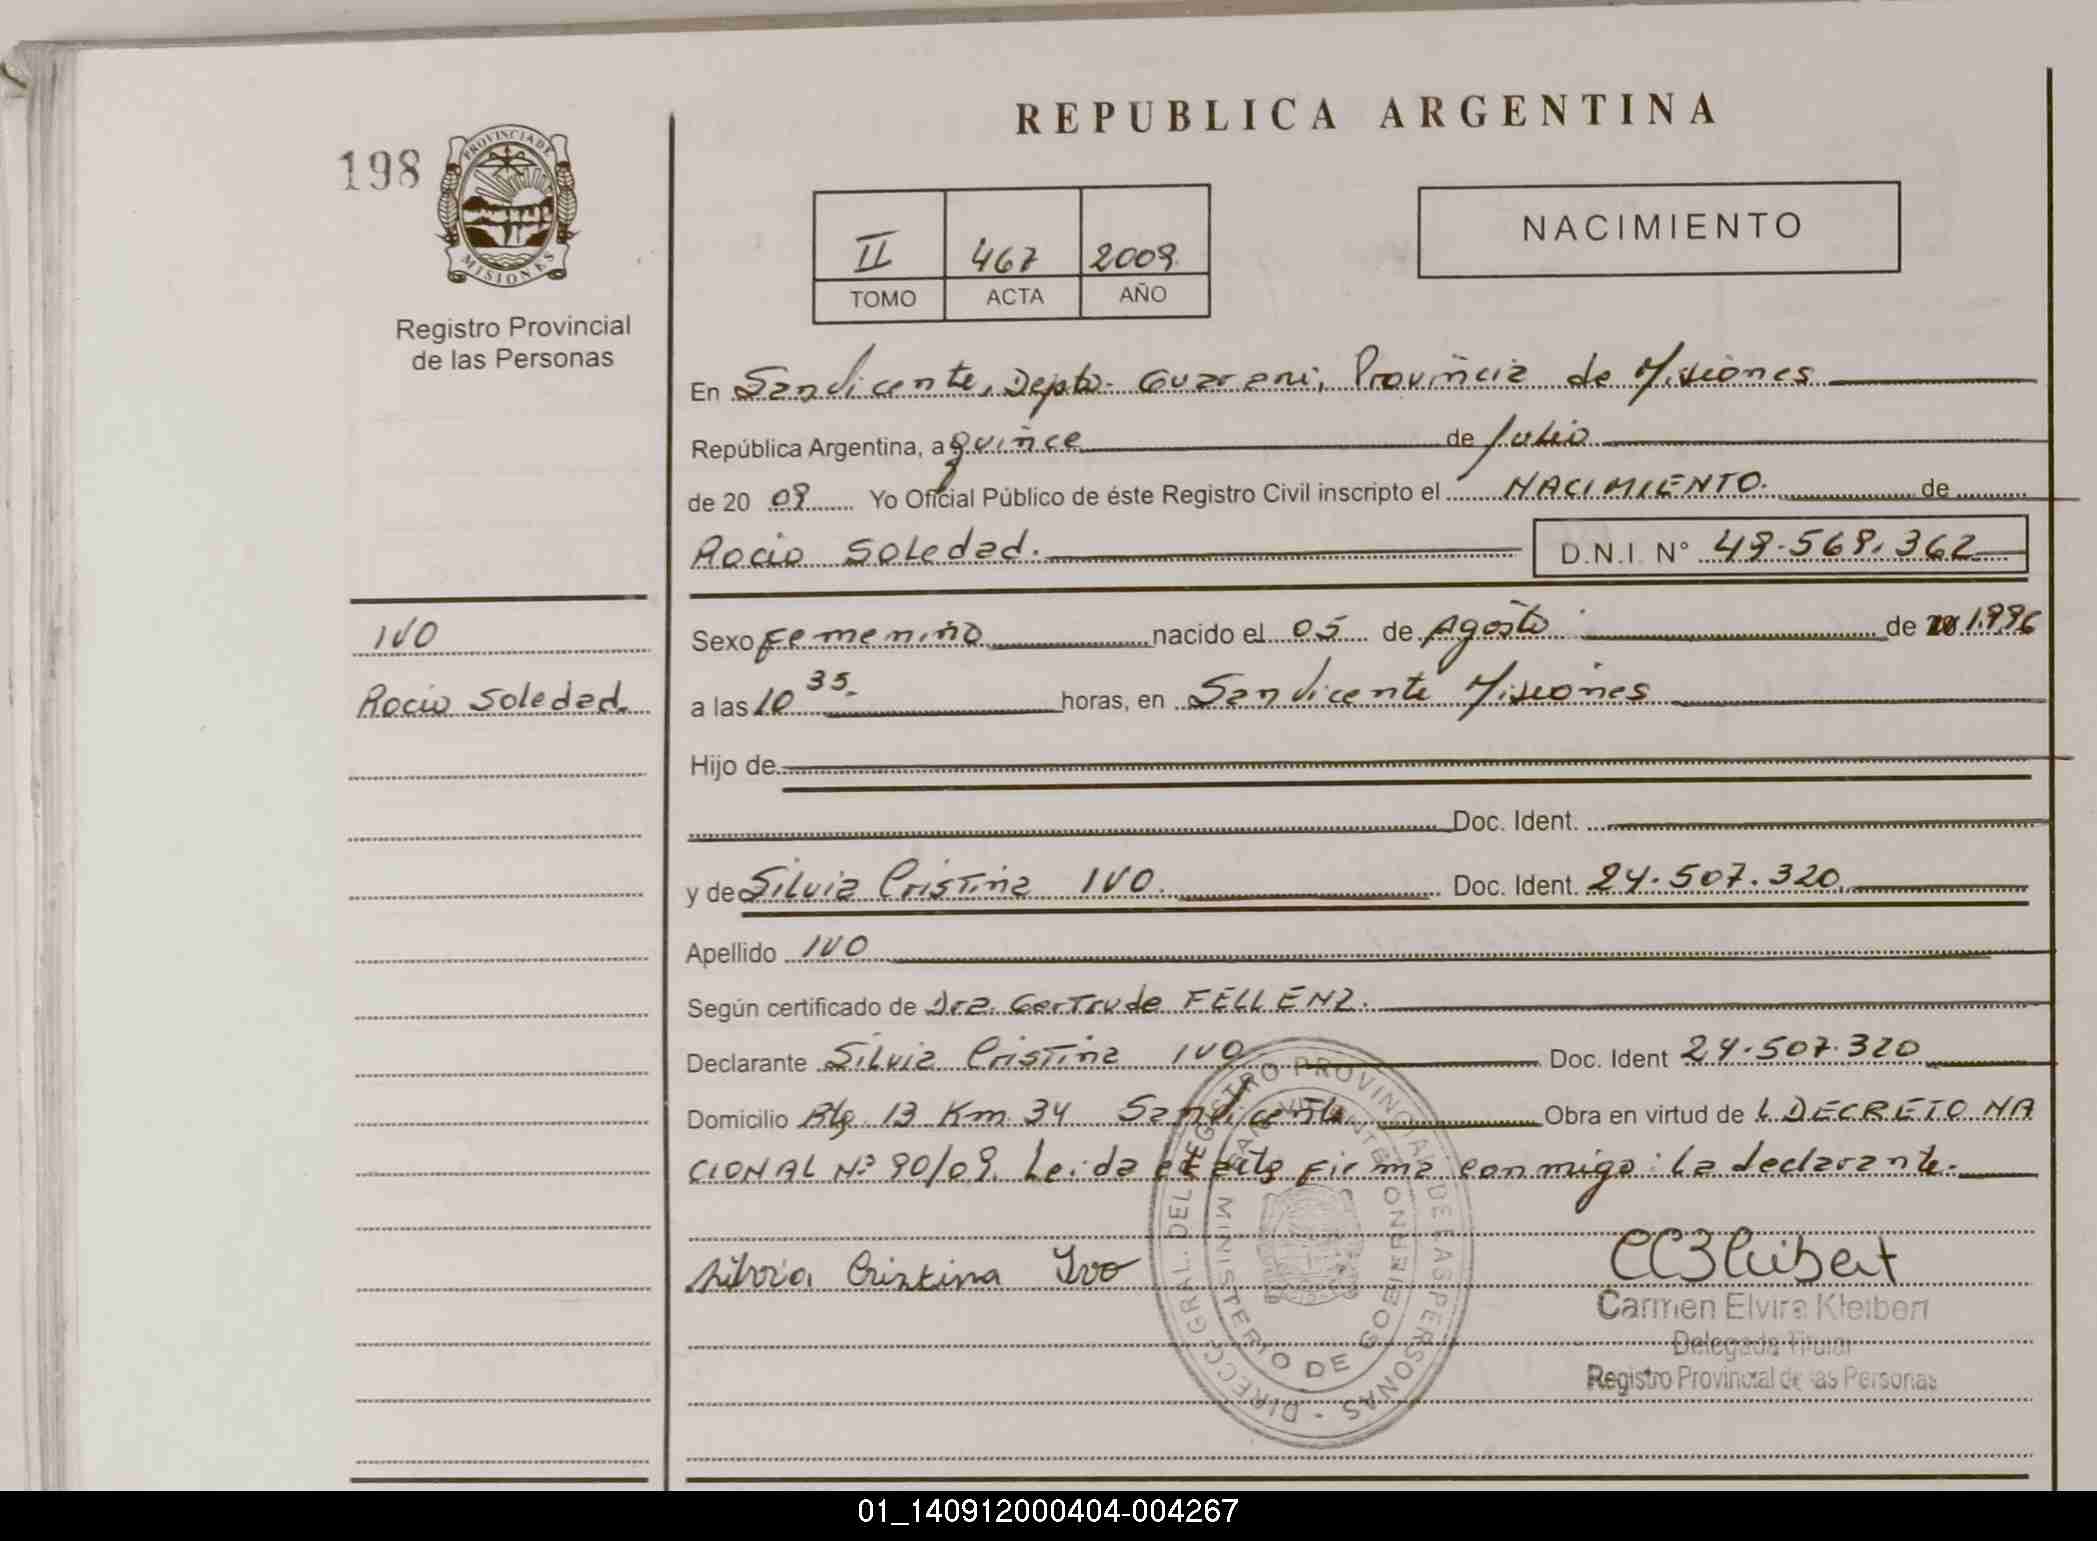 REPUBLICA ARGENTINA
198
PROVINCIA DE
MISIONES
Registro Provincial
de las Personas
II 467 2009
TOMO ACTA AÑO
NACIMIENTO
En San Vicente, Depto. Guarani, Provincia de Misiones
República Argentina, a quince de Julio
de 20 09 Yo Oficial Público de éste Registro Civil inscripto el NACIMIENTO. de
Rocio Soledad. D.N.I. N° 49.569.362
IVO
Rocio Soledad.
Sexo Femenino nacido el 05 de Agosto de 1.996
a las 10 35. horas, en San Vicente Misiones
Hijo de
Doc. Ident.
y de Silvia Cristina IVO. Doc. Ident. 24.507.320
Apellido IVO
Según certificado de Dra. Gertrude FELLENZ.
Declarante Silvia Cristina IVO Doc. Ident 24.507.320
Domicilio Km 34 San Vicente Obra en virtud de L DECRETO NA
CIONAL Nº 90/09. Leida el acta firma conmigo: La declarante.
Silvia Cristina Ivo
Carmen Elvira Kleibert
Delegada Titular
Registro Provincial de las Personas
DIRECC. GRAL. DEL REGISTRO PROVINCIAL DE LAS PERSONAS -
MINISTERIO DE GOBIERNO
SAN VICENTE
01_140912000404-004267